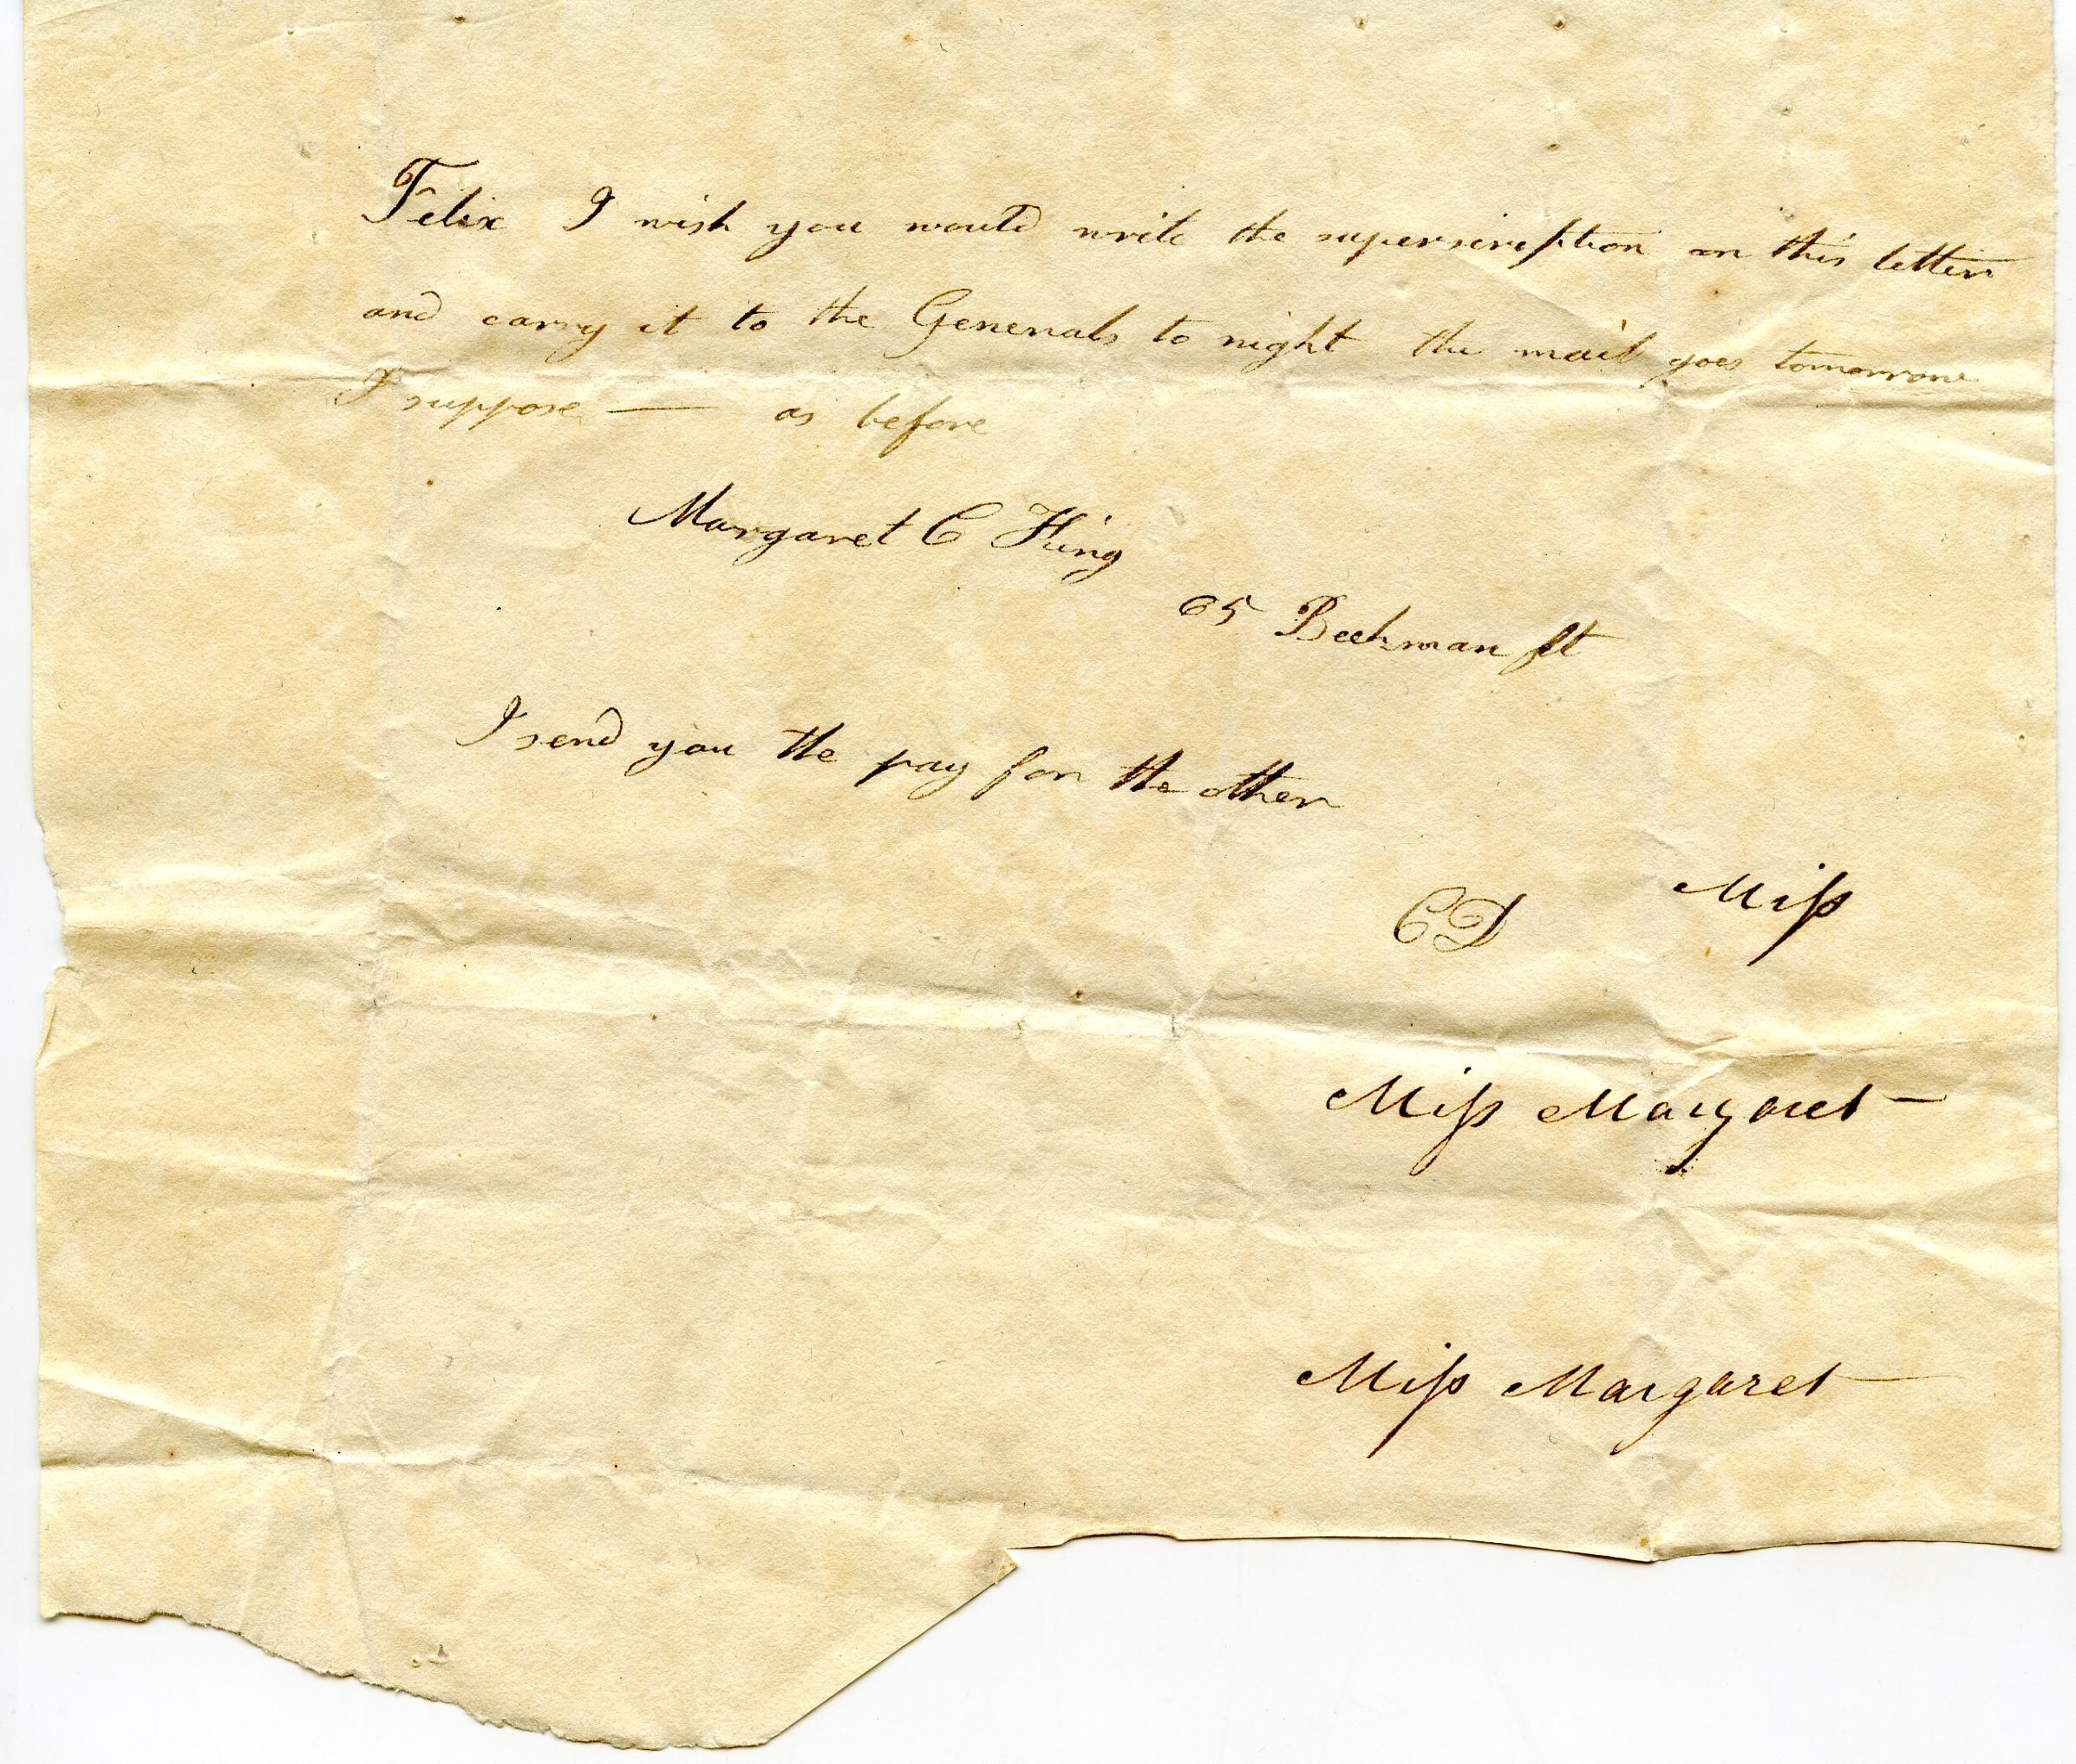 Felix I wish you would write the superscription on this letter
and carry it to the Generals to night the mail goes tomorrow
I suppose — as before
Margaret C King
65 Beekman St
I send you the pay for the other
CD Miss
Miss Margaret —
Miss Margaret —